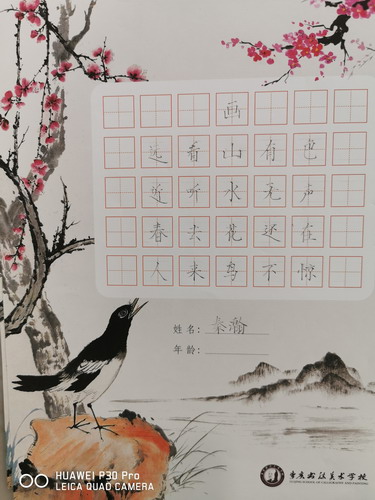 画
远看山有色
近听水无声
春去花还在
人来鸟不惊
姓名: 秦瀚
年龄:
重庆书法美术学校
HUAWEI P30 Pro
LEICA QUAD CAMERA